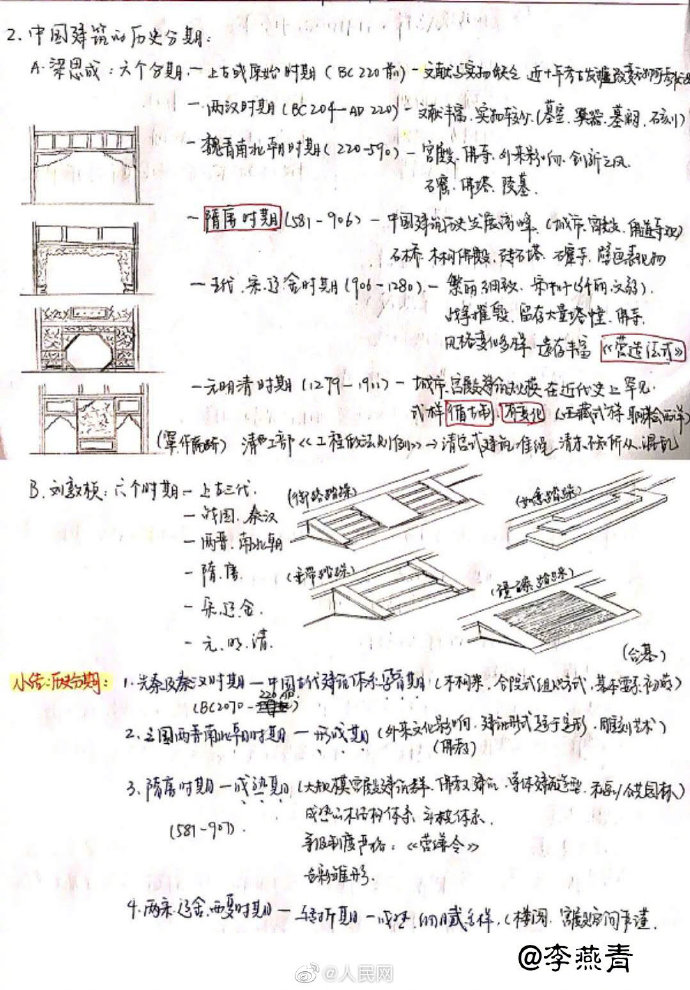 2. 中国建筑的历史分期:
A. 梁思成: 六个分期. — 上古或原始时期 (BC220前) — 文献与实物缺乏 近十年考古发掘
— 两汉时期 (BC204—AD 220) — 文献丰富, 实物较少. (墓室. 冥器. 墓祠. 石刻)
— 魏晋南北朝时期 (220-590) — 宫殿. 佛寺. 外来影响. 创新之风
石窟. 佛塔. 陵墓.
— 隋唐时期 (581-906) — 中国建筑历史发展高峰. (城市. 宫殿.
石桥. 木构佛殿. 砖石塔. 石窟寺. 壁画
— 五代. 宋辽金时期 (906-1280). — 繁丽细致.
战争摧毁. 留存大量塔幢. 佛寺.
风格变化多样 遗存丰富 《营造法式》
— 元明清时期 (1279-1911) — 城市. 宫殿建筑规模在近代史上罕见.
式样
清工部《工程做法则例》→ 清官式建筑准绳. 清末 混乱
B. 刘敦桢: 六个时期 — 上古三代.
— 战国. 秦汉
— 两晋. 南北朝
— 隋. 唐.
— 宋辽金.
— 元. 明. 清.
(御路踏跺)
(如意踏跺)
(垂带踏跺)
(礓磋踏跺)
(台基)
小结: 历史分期:
1. 先秦及秦汉时期 — 中国古代建筑体系孕育期 (木构架. 合院式组织方式. 基本要素初备)
(BC2070 - 220
2. 三国两晋南北朝时期 — 形成期 (外来文化影响. 建筑形式趋于定形. 雕刻艺术)
(佛教)
3. 隋唐时期 — 成熟期 (大规模宫殿建筑群. 佛教建筑. 单体建筑造型.
(581-907)
成熟的木结构体系. 斗栱体系.
等级制度严格: 《营缮令》
色彩雏形.
4. 两宋. 辽金. 西夏时期 — 转折期 — 成熟. 细腻多样. (楼阁. 宫殿空间严谨.
@人民网
@李燕青